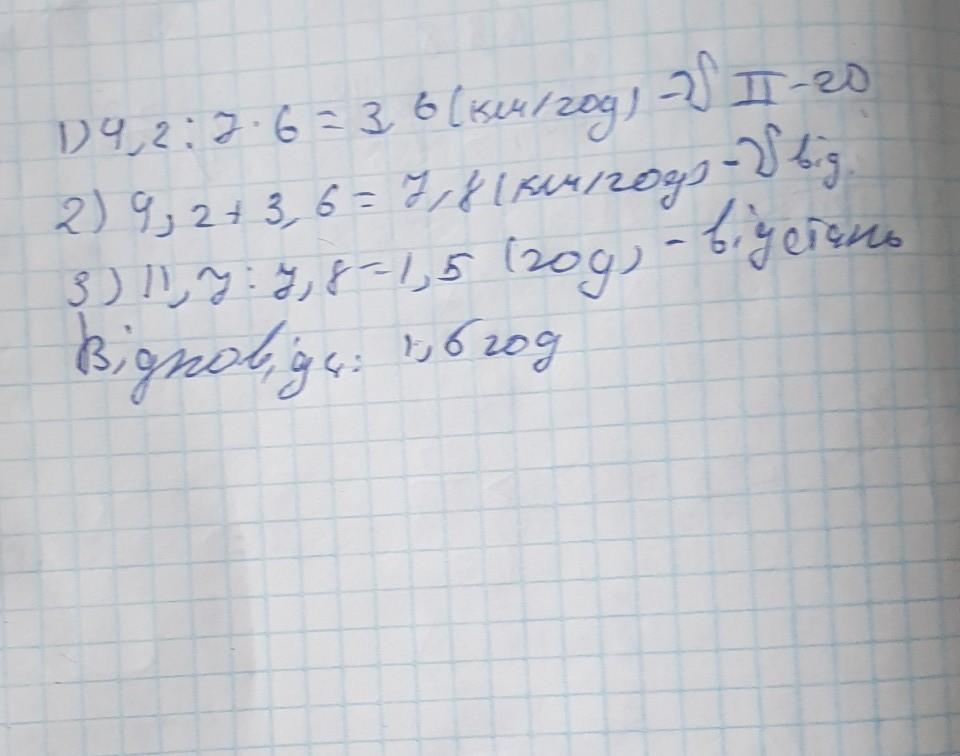 1) 4,2 : 7 · 6 = 3,6 (км/год) - V II - го
2) 4,2 + 3,6 = 7,8 (км/год) - V від.
3) 11,7 : 7,8 = 1,5 (год) - відстань
Відповідь: 1,5 год